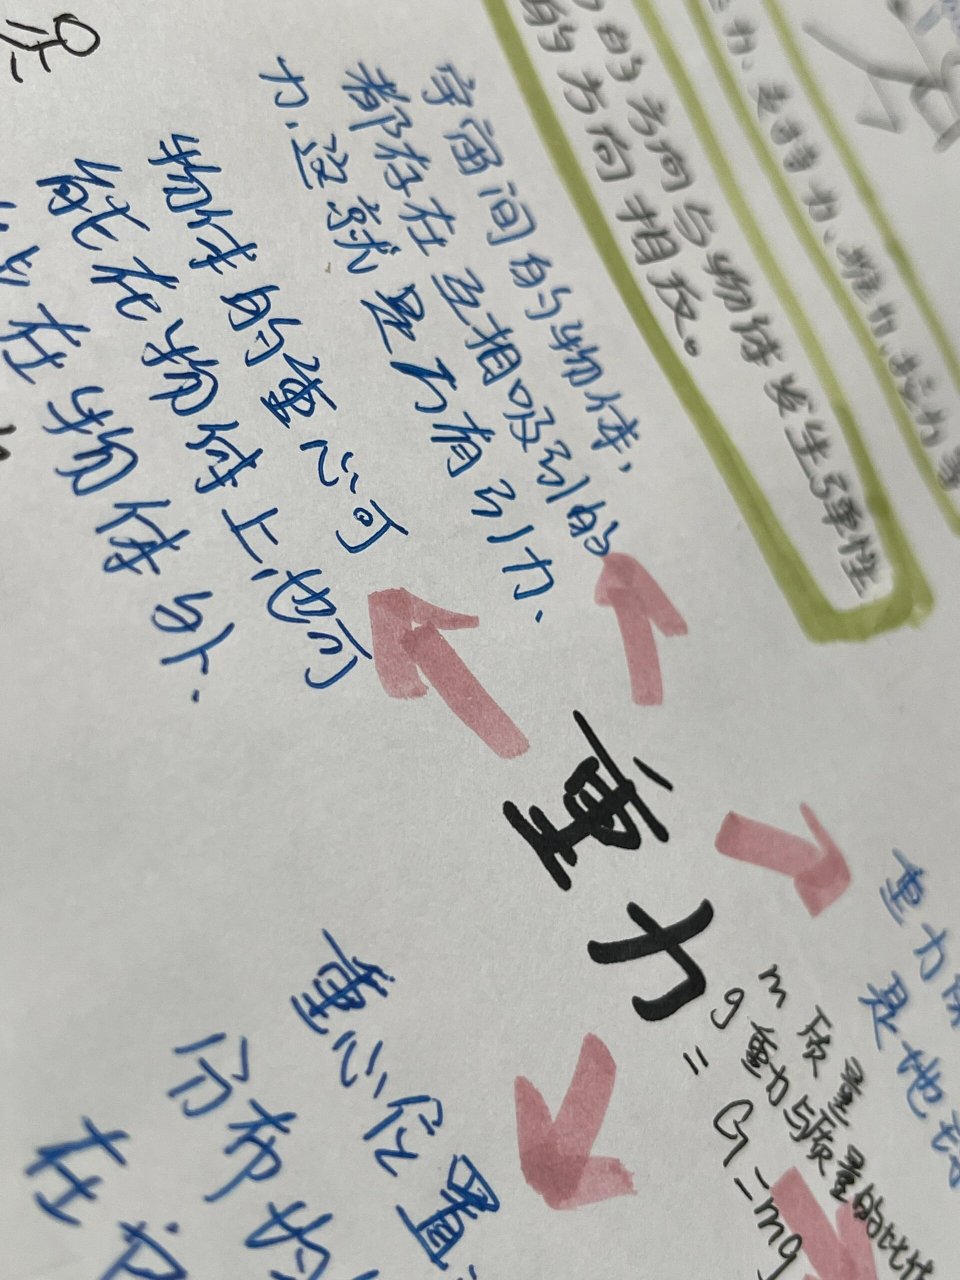 力、支持力、推力、拉力等
的方向与物体发生弹性
的方向相反。
宇宙间的物体,
都存在互相吸引的
力,这就是万有引力.
物体的重心可
能在物体上,也可
在物体外.
重力
重力
是地球
m 质量
g 重力与质量的比值
= G=mg
重心位置
分布均
在